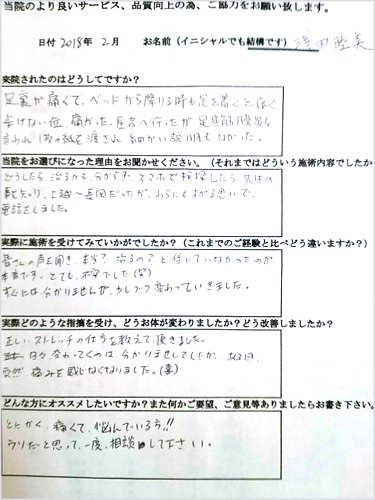 当院のより良いサービス、品質向上の為、ご協力をお願い致します。
日付 2018年 2月 お名前(イニシャルでも結構です)
来院されたのはどうしてですか?
足裏が痛くて、ベッドから降りる時も足を着くと痛く
歩けない位、痛かった。医者へ行ったが足底筋膜炎と
言われ1枚の紙を渡され細かい説明もなかった。
当院をお選びになった理由をお聞かせください。(それまではどういう施術内容でしたか
どうしたら治るか分からず、スマホで検索したら先生の
事を知り、上越〜長岡だったが、わらにもすがる思いで、
電話をしました。
実際に施術を受けてみていかがでしたか?(これまでのご経験と比べどう違いますか?)
皆さんの声を聞き、本当に治るの?と信じていなかったのが
本音です。とても、不安でした(笑)
すぐには分かりませんが、少しづつ変わっていきました。
実際どのような指摘を受け、どうお体が変わりましたか?どう改善しましたか?
正しいストレッチの仕方を教えて頂きました。
日々変わってくのは、分かりませんでしたが、ある日、
突然痛みを感じなくなりました。(笑)
どんな方にオススメしたいですか?また何かご要望、ご意見等ありましたらお書き下さい。
とにかく、痛くて、悩んでいる方!!
ウソだと思って、一度、相談して下さい。